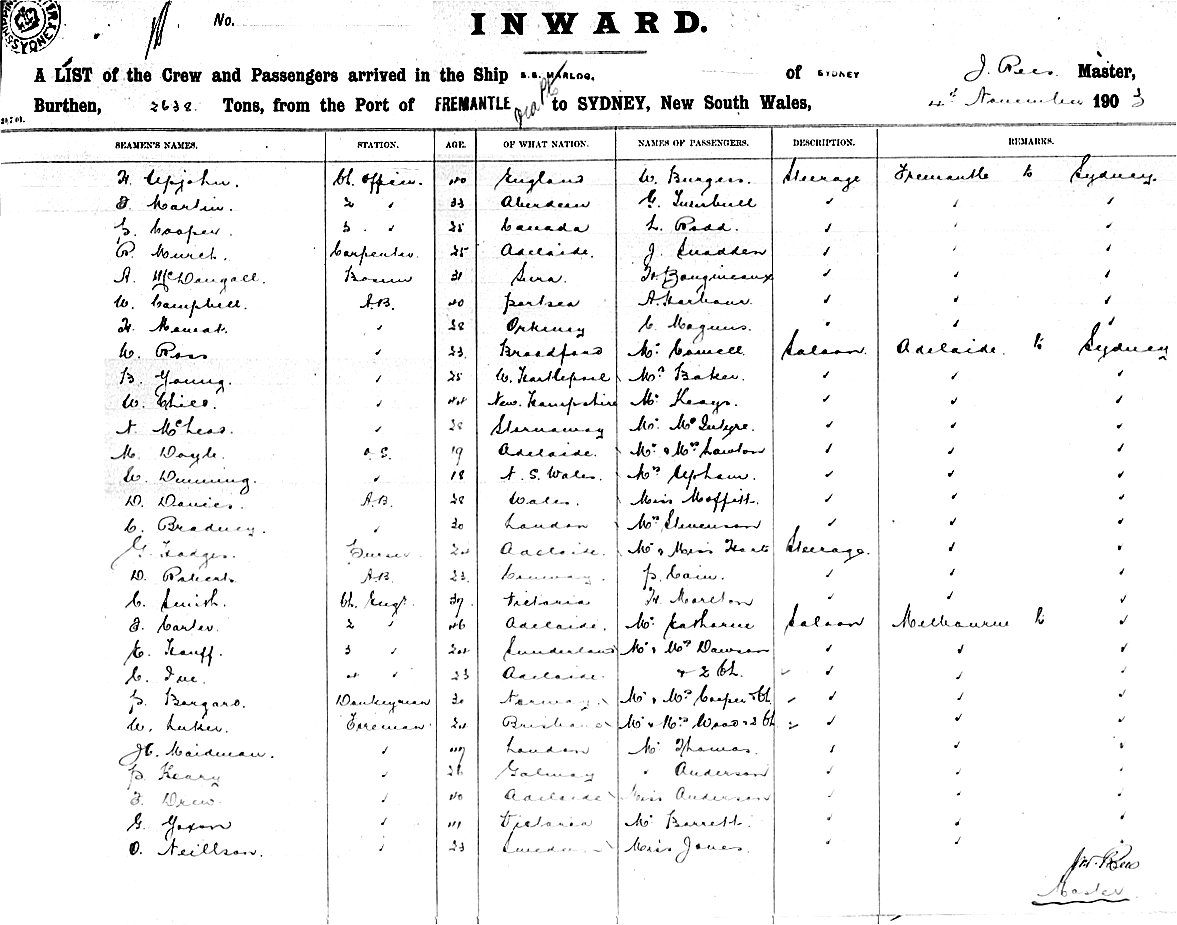 No.
INWARD.
A LIST of the Crew and Passengers arrived in the Ship S.S. MARLOO, of SYDNEY J. Rees Master,
Burthen, 2638 Tons, from the Port of FREMANTLE to SYDNEY, New South Wales, 4th November 1903
SEAMEN'S NAMES. STATION. AGE. OF WHAT NATION. NAMES OF PASSENGERS. DESCRIPTION. REMARKS.
H. Upjohn. Ch. Officer. 40 England W. Burgess. Steerage Fremantle to Sydney.
F. Martin. 2 " 33 Aberdeen G. Turnbull " " "
G. Cooper. 3 " Canada L. Rodd. " " "
R. Murch. Carpenter 25 Adelaide. J. Snadden " " "
A. McDougall. Bosun 31 H. " " "
W. Campbell. A.B. 40 Portsea A. Harbour. " " "
H. Mowat. " 28 Orkney C. Magnus. " " "
W. Ross " 23 Broadford Mr. Cowell. Saloon. Adelaide. to Sydney
B. Young. " 25 W. Hartlepool Mrs Baker. " " "
W. Chiles. " 44 New. Hampshire Mr. Keays. " " "
N. McLeod. " 28 Stornaway Mr. McIntyre. " " "
M. Doyle. O.S. 19 Adelaide. Mr. & Mrs Lawton " " "
W. Dunning. " 18 N. S. Wales. Mrs Upham. " " "
D. Davies. A.B. 28 Wales. Miss Moffitt. " " "
C. Bradney. " 30 London Mrs Stevenson " " "
G. Hodges. 24 Adelaide. Mr. & Miss Steerage. " "
D. Roberts. A.B. 23 Conway. P. Cain. " " "
C. Smith. Ch. Engr. 37 Victoria H. Marlton " " "
F. Carter. 2 " 46 Adelaide. Mr. Catharine Saloon Melbourne to "
E. Hauff. 3 " 24 Sunderland Mr. & Mrs Dawson " " "
C. 4 " 23 Adelaide. & 2 Ch. " " "
P. Borgaro. Donkeyman 30 Norway. Mr. & Mrs Cooper & Ch " " "
W. Luker. Fireman 24 Brisbane Mr. & Mrs Wood & 2 Ch " " "
H. Maidman. " 47 London Mr. Thomas. " " "
P. Keary " 26 Galway " Anderson " " "
F. Drew. " 40 Adelaide Miss Anderson " " "
G. Yoxon " 41 Victoria Mr Barrett. " " "
O. Neillson. " 23 Sweden Miss Jones. " "
J.W. Rees
Master.